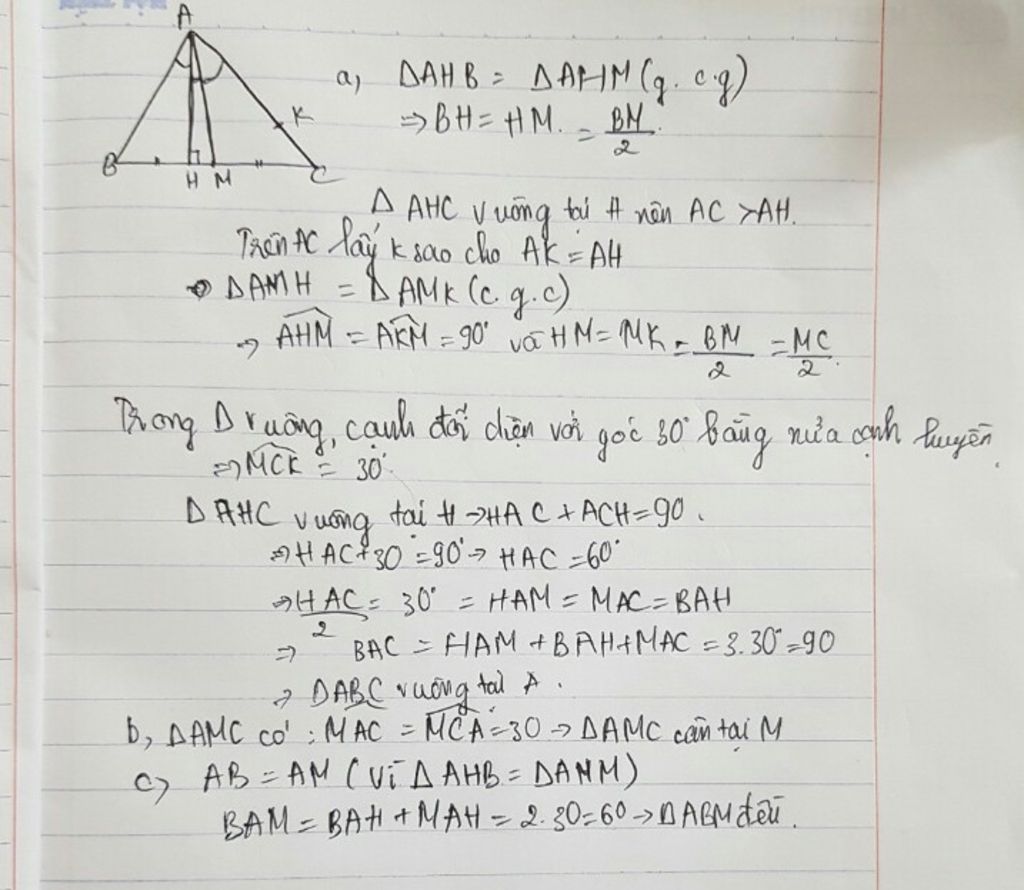 A
B
H M
C
K
a, ΔAHB = ΔAHM (g.c.g)
⇒ BH = HM. = BM/2
Δ AHC vuông tại H nên AC > AH.
Trên AC lấy K sao cho AK = AH
⇒ ΔAMH = ΔAMK (c.g.c)
⇒ AHM = AKM = 90° và HM = MK = BM/2 = MC/2.
Trong Δ vuông, cạnh đối diện với góc 30° bằng nửa cạnh huyền.
⇒ MCK = 30°.
Δ AHC vuông tại H → HAC + ACH = 90.
⇒ HAC + 30° = 90° → HAC = 60°
⇒ HAC/2 = 30° = HAM = MAC = BAH
⇒ BAC = HAM + BAH + MAC = 3.30° = 90
⇒ ΔABC vuông tại A.
b, ΔAMC có: MAC = MCA = 30 → ΔAMC cân tại M
c, AB = AM (vì ΔAHB = ΔAHM)
BAM = BAH + MAH = 2.30 = 60 → ΔABM đều.